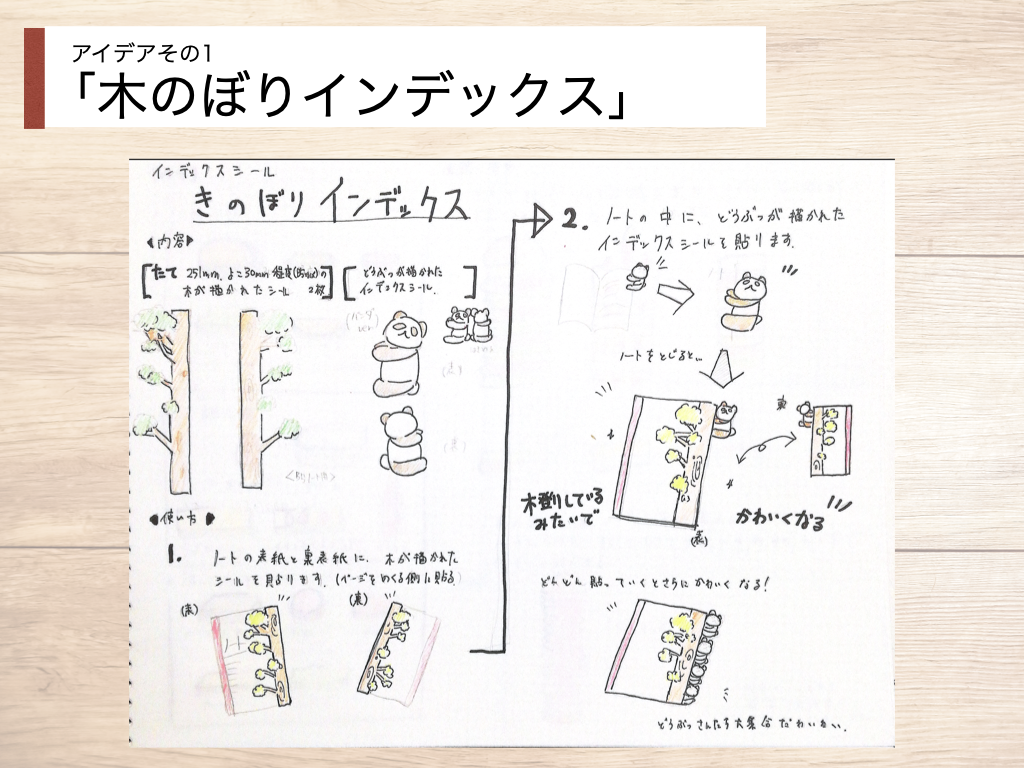 アイデアその1
「木のぼりインデックス」
インデックスシール
きのぼりインデックス
内容
たて 251mm、よこ30mm 程度(B5)の
木が描かれたシール 2枚
どうぶつが描かれた
インデックスシール。
(表)
(裏)
使い方
1.
ノートの表紙と裏表紙に、木が描かれた
シールを貼ります。(ページをめくる側に貼る)
(表)
(裏)
ノート
2.
ノートの中に、どうぶつが描かれた
インデックスシールを貼ります。
ノートをとじると…
裏
木登りしている
みたいで
かわいくなる
(表)
どんどん貼っていくとさらにかわいくなる!
どうぶつさんたち大集合だわいわい。